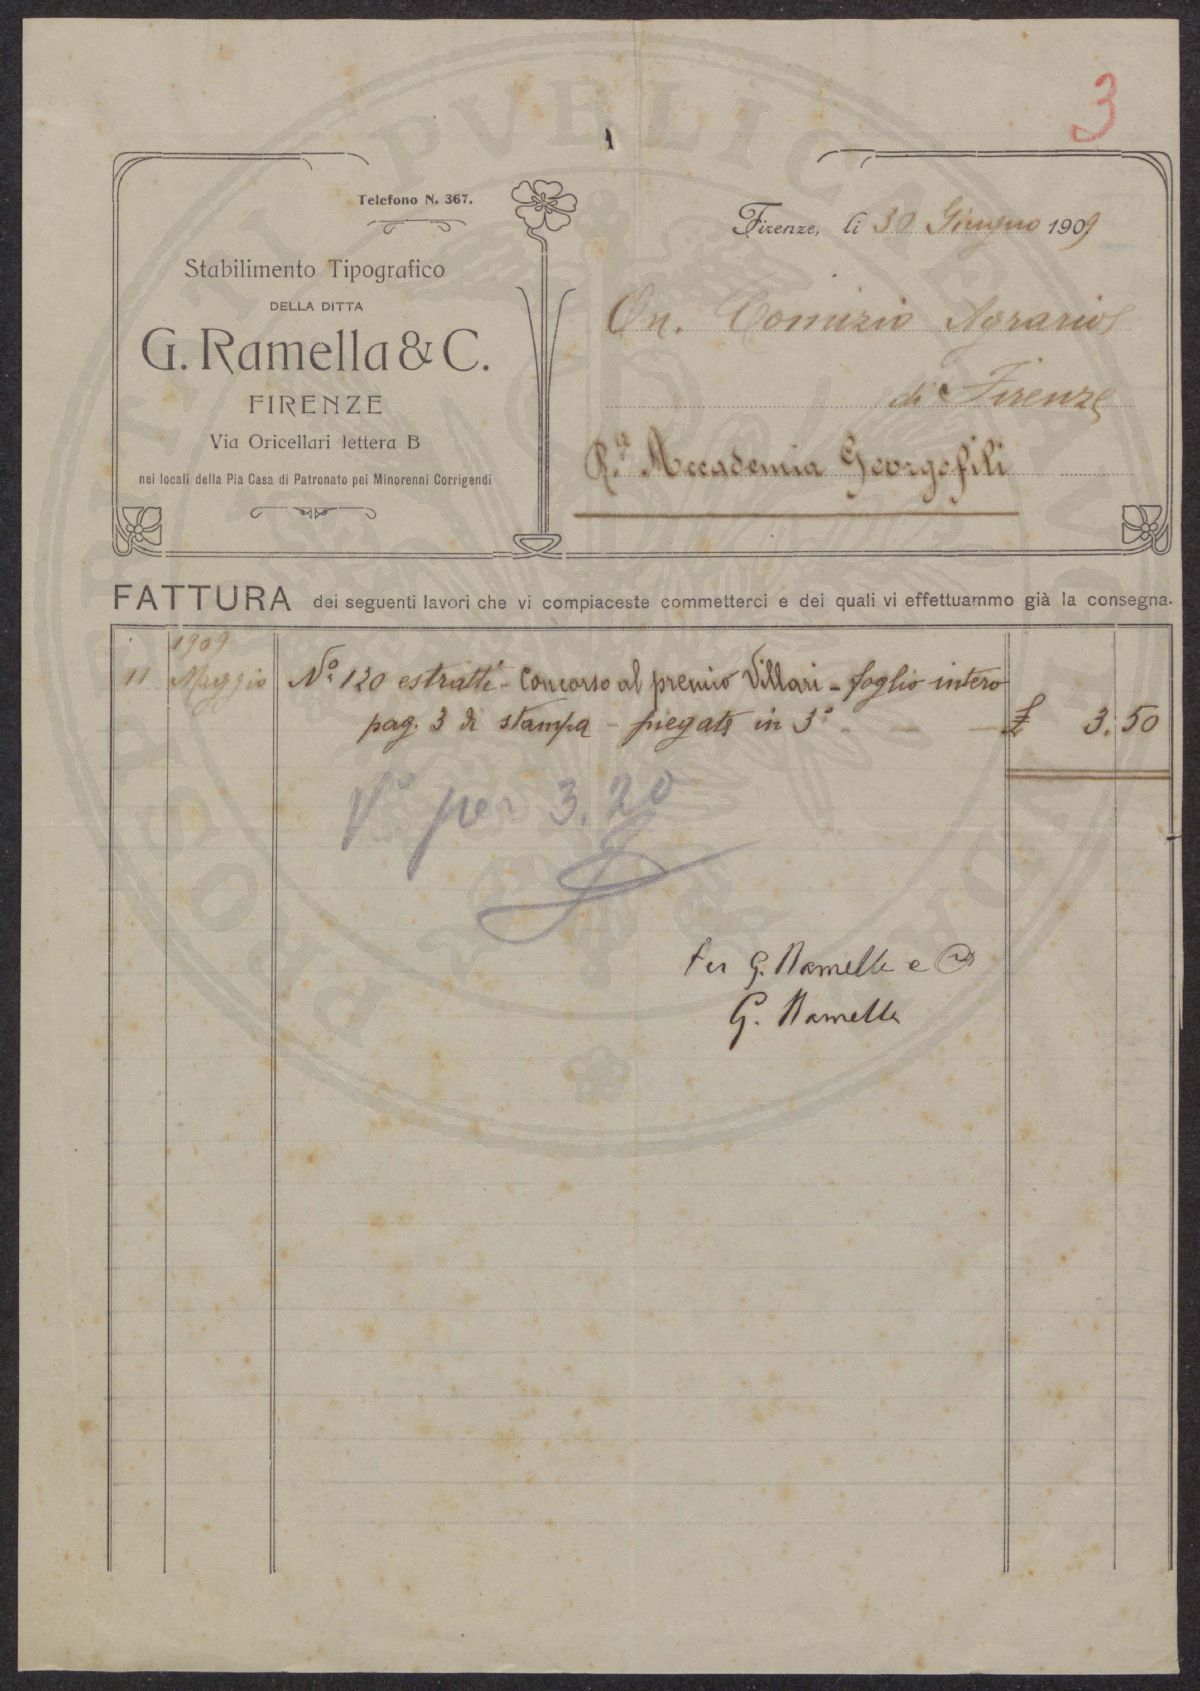 3
Telefono N. 367.
Stabilimento Tipografico
DELLA DITTA
G. Ramella & C.
FIRENZE
Via Oricellari lettera B
nei locali della Pia Casa di Patronato pei Minorenni Corrigendi
Firenze, li 30 Giugno 1909
On. Comizio Agrario
di Firenze
R.a Accademia Georgofili
FATTURA dei seguenti lavori che vi compiaceste commetterci e dei quali vi effettuammo già la consegna.
1909
11 Maggio No. 120 estratti - Concorso al premio Villari - foglio intero
pag. 3 di stampa - piegate in 3o - £ 3.50
Vo per 3.20
Per G. Ramella e C
G. Ramella